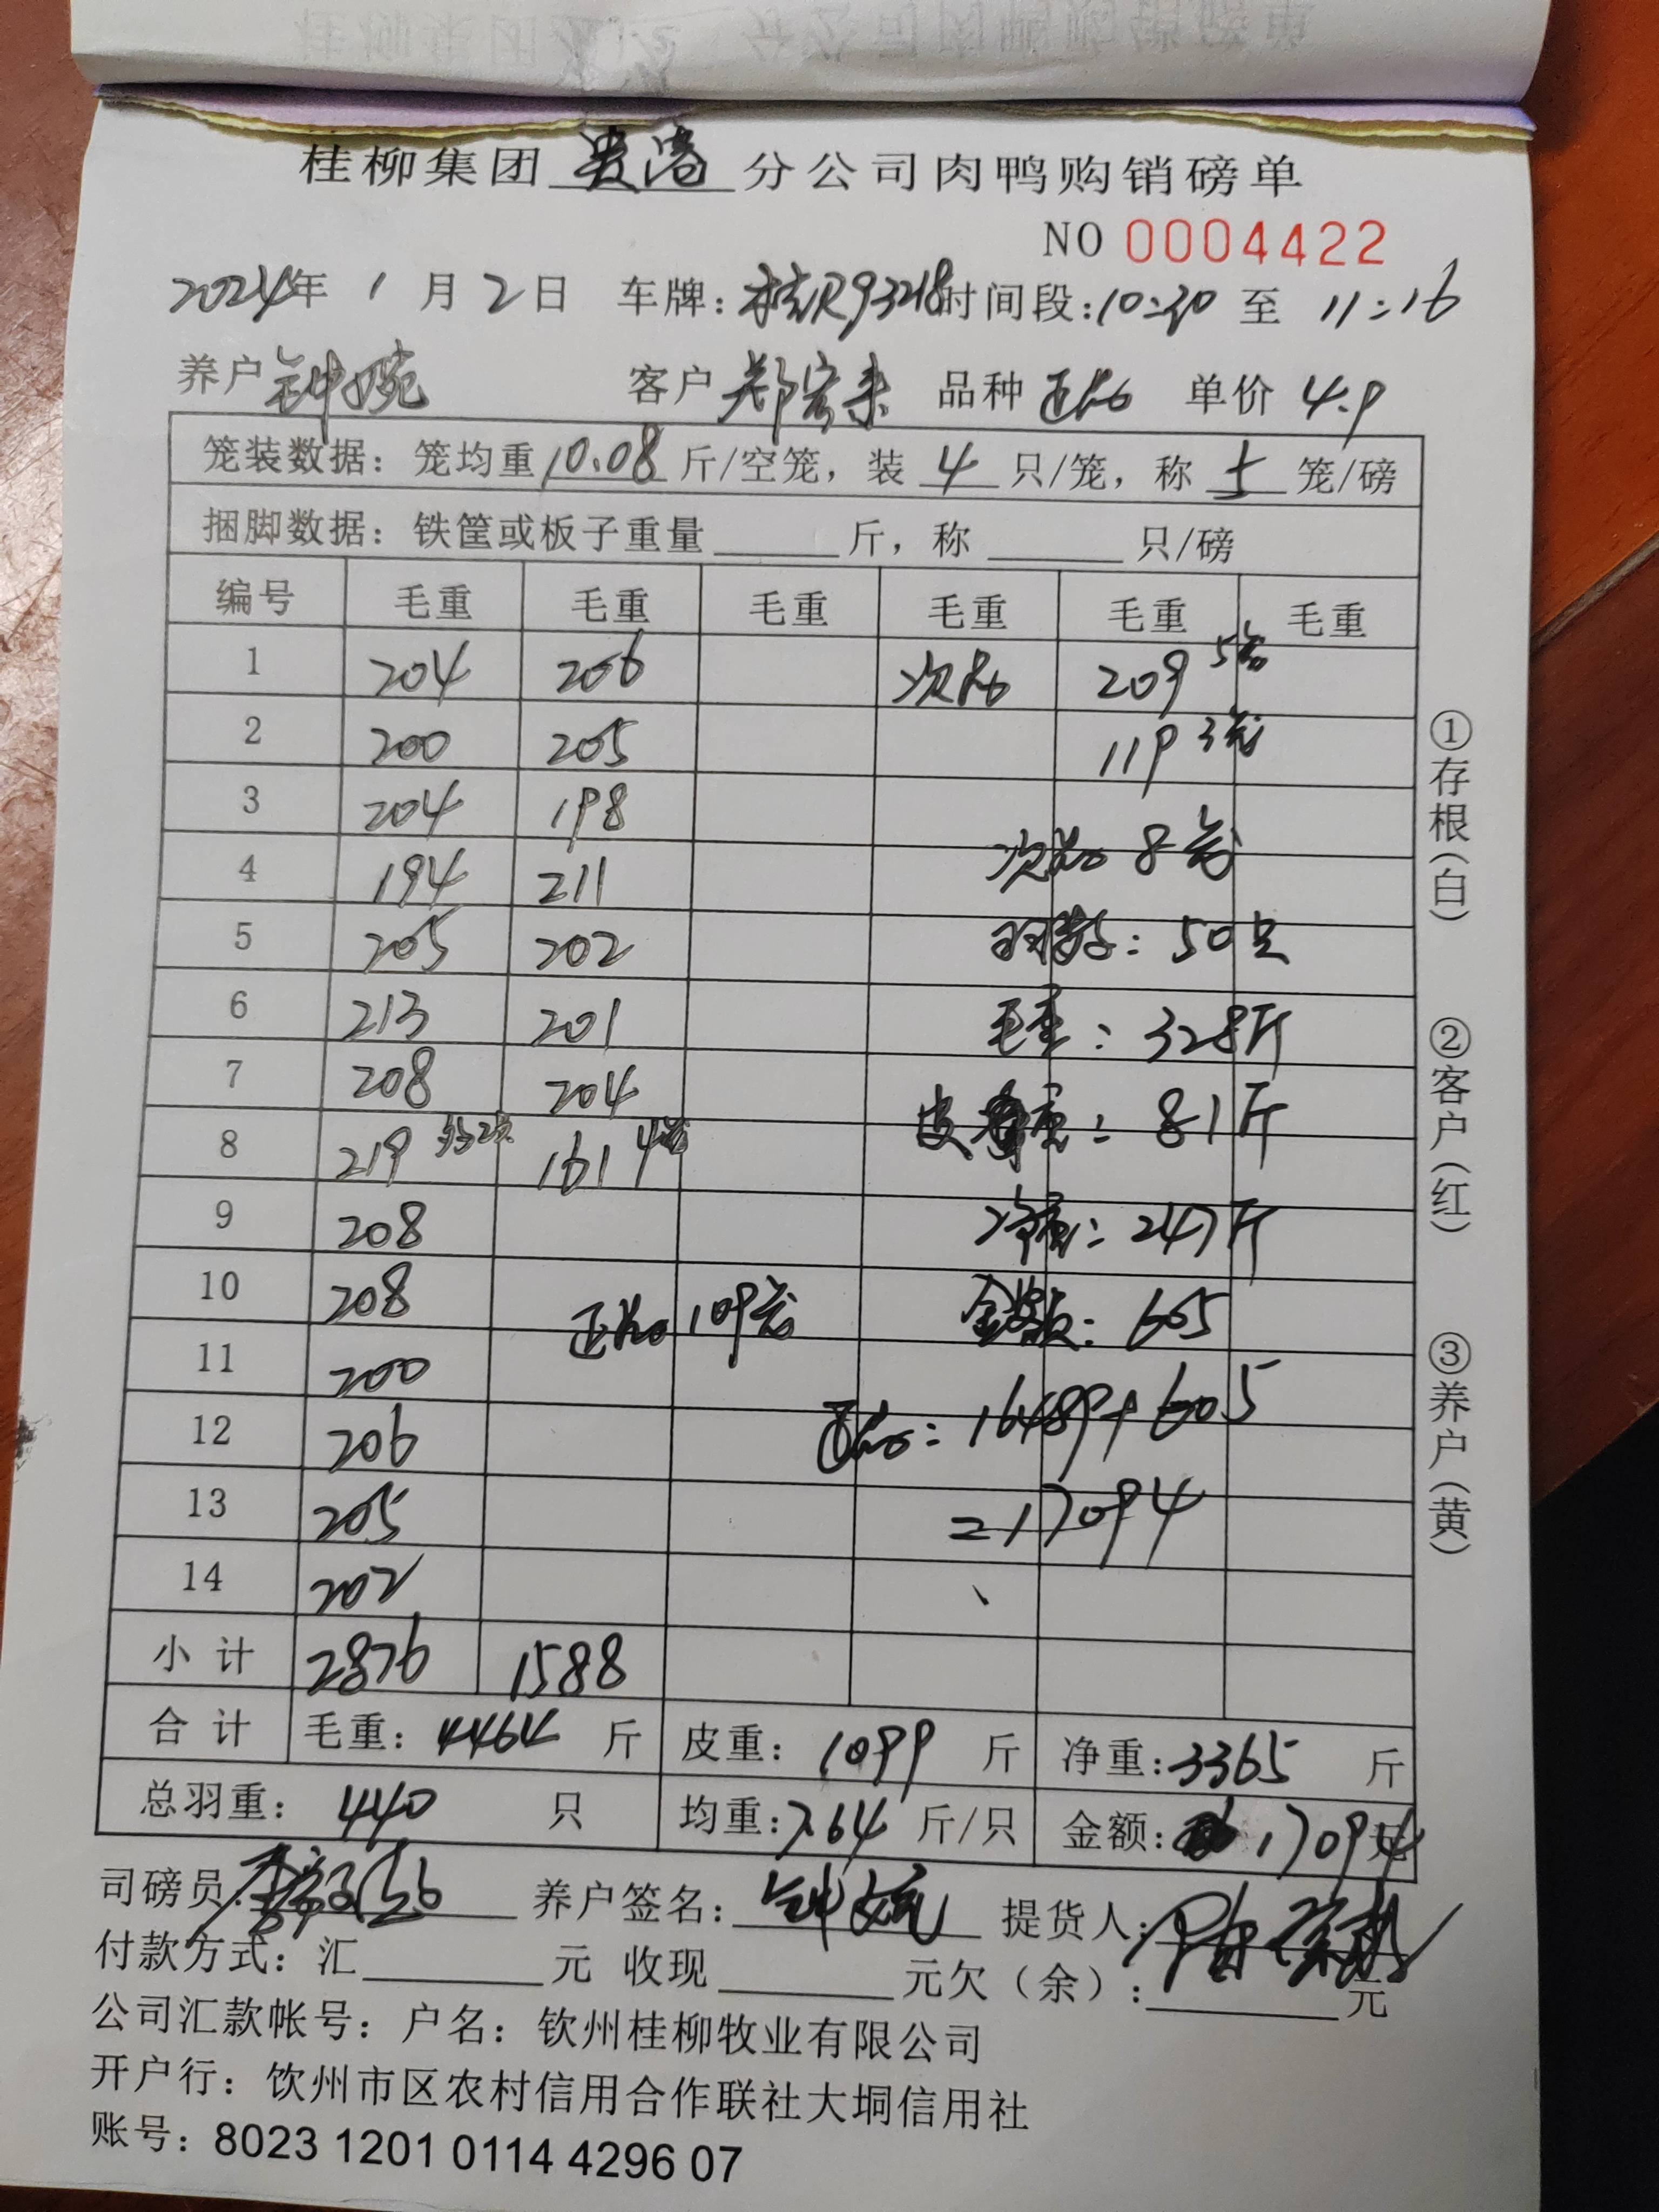 桂柳集团 贵港 分公司肉鸭购销磅单
NO 0004422
2024年 1 月 2 日 车牌: 桂R93218 时间段: 10:30 至 11:16
养户 钟婉 客户 郑宏来 品种 正品 单价 4.9
笼装数据: 笼均重 10.08 斤/空笼, 装 4 只/笼, 称 5 笼/磅
捆脚数据: 铁筐或板子重量 斤, 称 只/磅
编号 毛重 毛重 毛重 毛重 毛重 毛重
1 204 206 次品 209 5笼
2 200 205 119 3笼
3 204 198
次品 8笼
4 194 211
5 205 202 羽数: 50只
6 213 201 毛重: 328斤
7 208 204 皮重: 81斤
8 219 161 4笼
9 208 净重: 247斤
10 208 正品 109笼 金额: 605
11 200
12 206 正品: 16489+605
13 205 =17094
14 202
小计 2876 1588
合计 毛重: 4464 斤 皮重: 1099 斤 净重: 3365 斤
总羽重: 440 只 均重: 7.64 斤/只 金额: 17094 元
司磅员: 养户签名: 钟婉 提货人:
付款方式: 汇 元 收现 元欠(余): 元
公司汇款帐号: 户名: 钦州桂柳牧业有限公司
开户行: 饮州市区农村信用合作联社大垌信用社
账号: 8023 1201 0114 4296 07
①存根(白)
②客户(红)
③养户(黄)